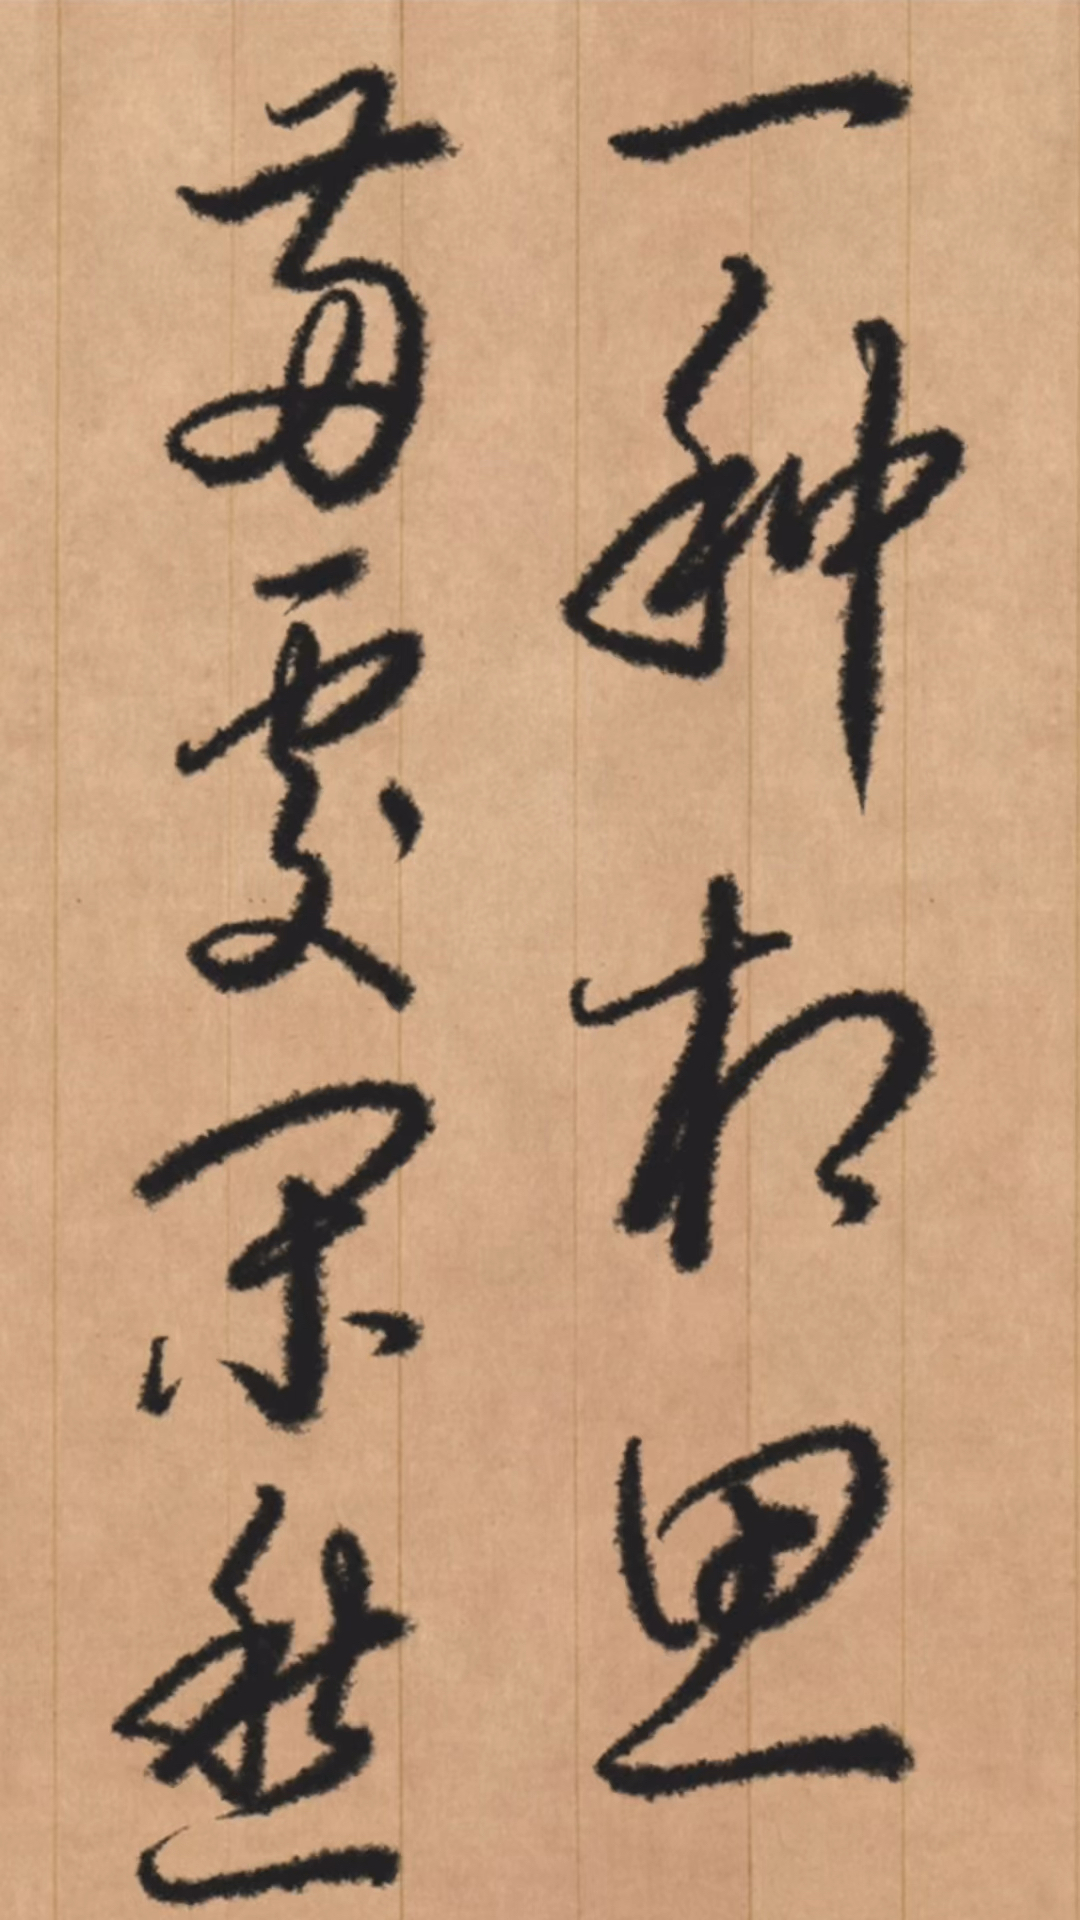 一种相思
两处闲愁